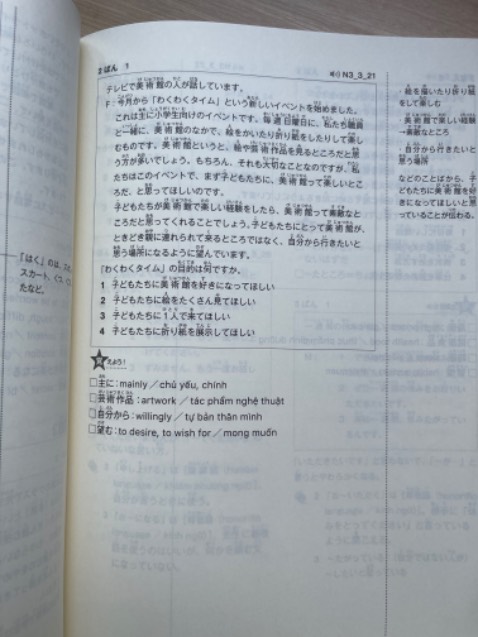 2ばん 1
N3_3_21
テレビで美術館の人が話しています。
F：今月から「わくわくタイム」という新しいイベントを始めました。
これは主に小学生向けのイベントです。毎週日曜日に、私たち職員
と一緒に、美術館のなかで、絵をかいたり折り紙をしたりして楽し
むものです。美術館というと、絵や芸術作品を見るところだと思
う方が多いでしょう。もちろん、それも大切なことなのですが、私
たちはこのイベントで、まず子どもたちに、美術館って楽しいとこ
ろだ、と思ってほしいのです。
子どもたちが美術館で楽しい経験をしたら、美術館って素敵なと
ころだと思ってくれることでしょう。子どもたちにとって美術館が、
ときどき親に連れられて来るところではなく、自分から行きたいと
思う場所になるように望んでいます。
「わくわくタイム」の目的は何ですか。
1 子どもたちに美術館を好きになってほしい
2 子どもたちに絵をたくさん見てほしい
3 子どもたちに1人で来てほしい
4 子どもたちに折り紙を展示してほしい
覚えよう！
□主に：mainly／chủ yếu, chính
□芸術作品：artwork／tác phẩm nghệ thuật
□自分から：willingly／tự bản thân mình
□望む：to desire, to wish for／mong muốn
・絵を描いたり折り紙
をして楽しむ
・美術館で楽しい経験
→素敵なところ
・自分から行きたいと
思う場所
などのことばから、子
どもたちに美術館を好
きになってほしいと思
っていることが伝わる。
「はく」のは、
スカート、くつ、
たなど。